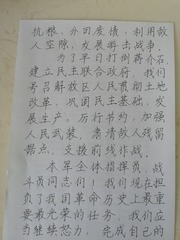 抗粮，分田废债，利用敌
人空隙，发展游击战争。
为了早日打倒蒋介石
建立民主联合政府，我们
号召解放区人民贯彻土地
改革，巩固民主基础，发
展生产，厉行节约，加强
人民武装，肃清敌人残留
据点，支援前线作战。
本军全体指挥员，战
斗员同志们！我们现在担
负了我国革命历史上最重
要最光荣的任务，我们应
当继续努力，完成自己的